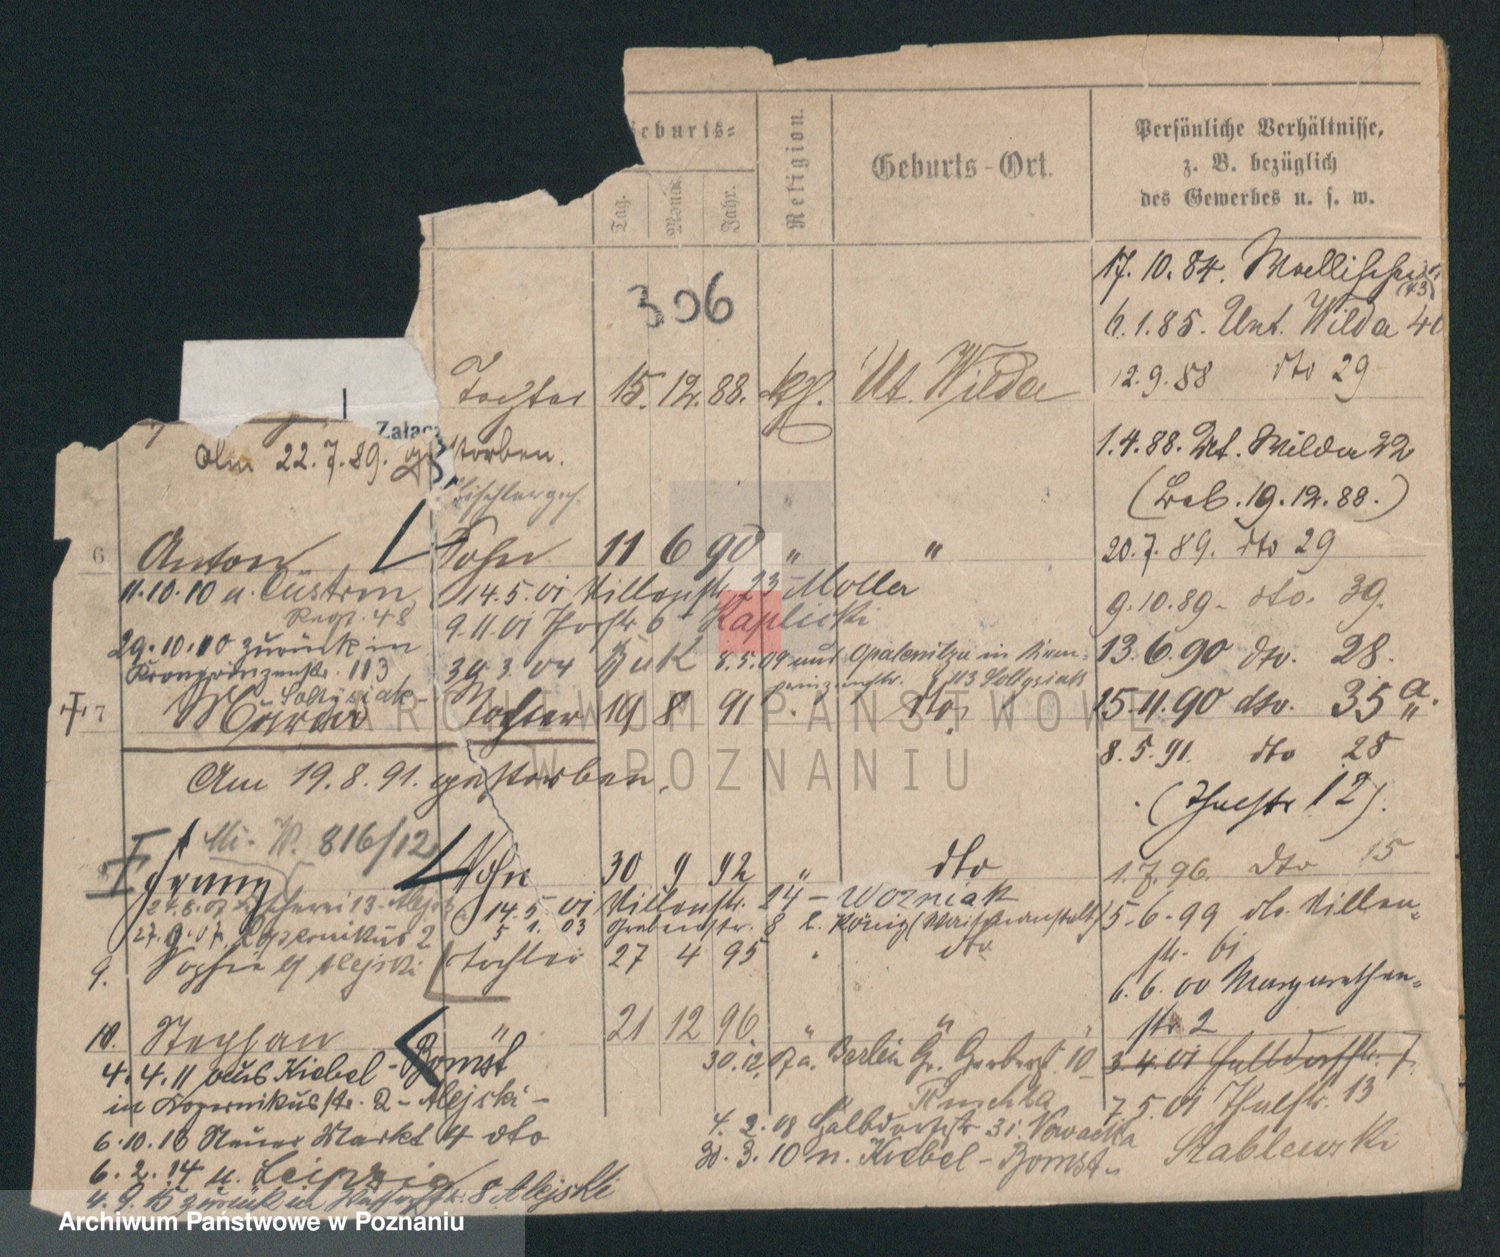 Geburts-
Tag.
Monat.
Jahr.
Religion.
Geburts-Ort.
Persönliche Verhältnisse,
z. B. bezüglich
des Gewerbes u. s. w.
306
17. 10. 84.
6. 1. 85. Unt. Wilda
12. 9. 88 dto 29
Tochter 15. 12. 88. kth. Ut. Wilda
Załąc
Am 22. 7. 89. gestorben.
1. 4. 88. Ut. Wilda 22
(Leb. 19. 12. 88.)
Tischlerges.
6 Anton Sohn 11 6 90 " "
20. 7. 89. dto 29
11. 10. 10 n. Cüstrin 14. 5. 01 23 - Moller
Regt. 48
9. 10. 89 - dto. 39.
9. 11. 01 6 - Kaplicki
29. 10. 10 zurück in
Kronprinzenstr. 113
30. 3. 04 Buk 8. 5. 09 aus Opalenitza in Kron-
prinzenstr. 113 Soltysiak
13. 6. 90 dto. 28.
Soltysiak -
7 Maria Tochter 19 8 91 " dto.
15. 11. 90 dto. 35 a.
8. 5. 91. dto 28
Am 19. 8. 91. gestorben.
(Thalstr 12).
Mi. W. 816/12
Franz Sohn 30 9 92 " dto
1. 7. 96. dto 15
14. 5. 01 24 - Wozniak
5. 6. 99 do. Villen-
str. 61
5. 1. 03 Grabenstr. 8 b. König (Waisenanstalt)
27. 9. 07. Kopernikus 2
9. Sophie b/ Alejski Tochter 27 4 95 " dto.
6. 6. 00 Margarethen-
str. 2
10. Stephan " 21 12 96. " "
4. 4. 11 aus Kiebel - Bomst
30. 12. 07 a. Berlin Gr. 10
3. 4. 01 Halbdorfstr. 7.
in Kopernikusstr. 2 - Alejski -
Ruschka
7. 5. 01 Thalstr. 13
6. 10. 13 Neuer Markt 4 dto
4. 2. 08 Halbdorfstr 31 Nowacka
Stablewski
6. 2. 14 n. Leipzig
30. 3. 10 n. Kiebel - Bomst -
4. 9. 15 zurück in 8 Alejski
ARCHIWUM PAŃSTWOWE
W POZNANIU
Archiwum Państwowe w Poznaniu